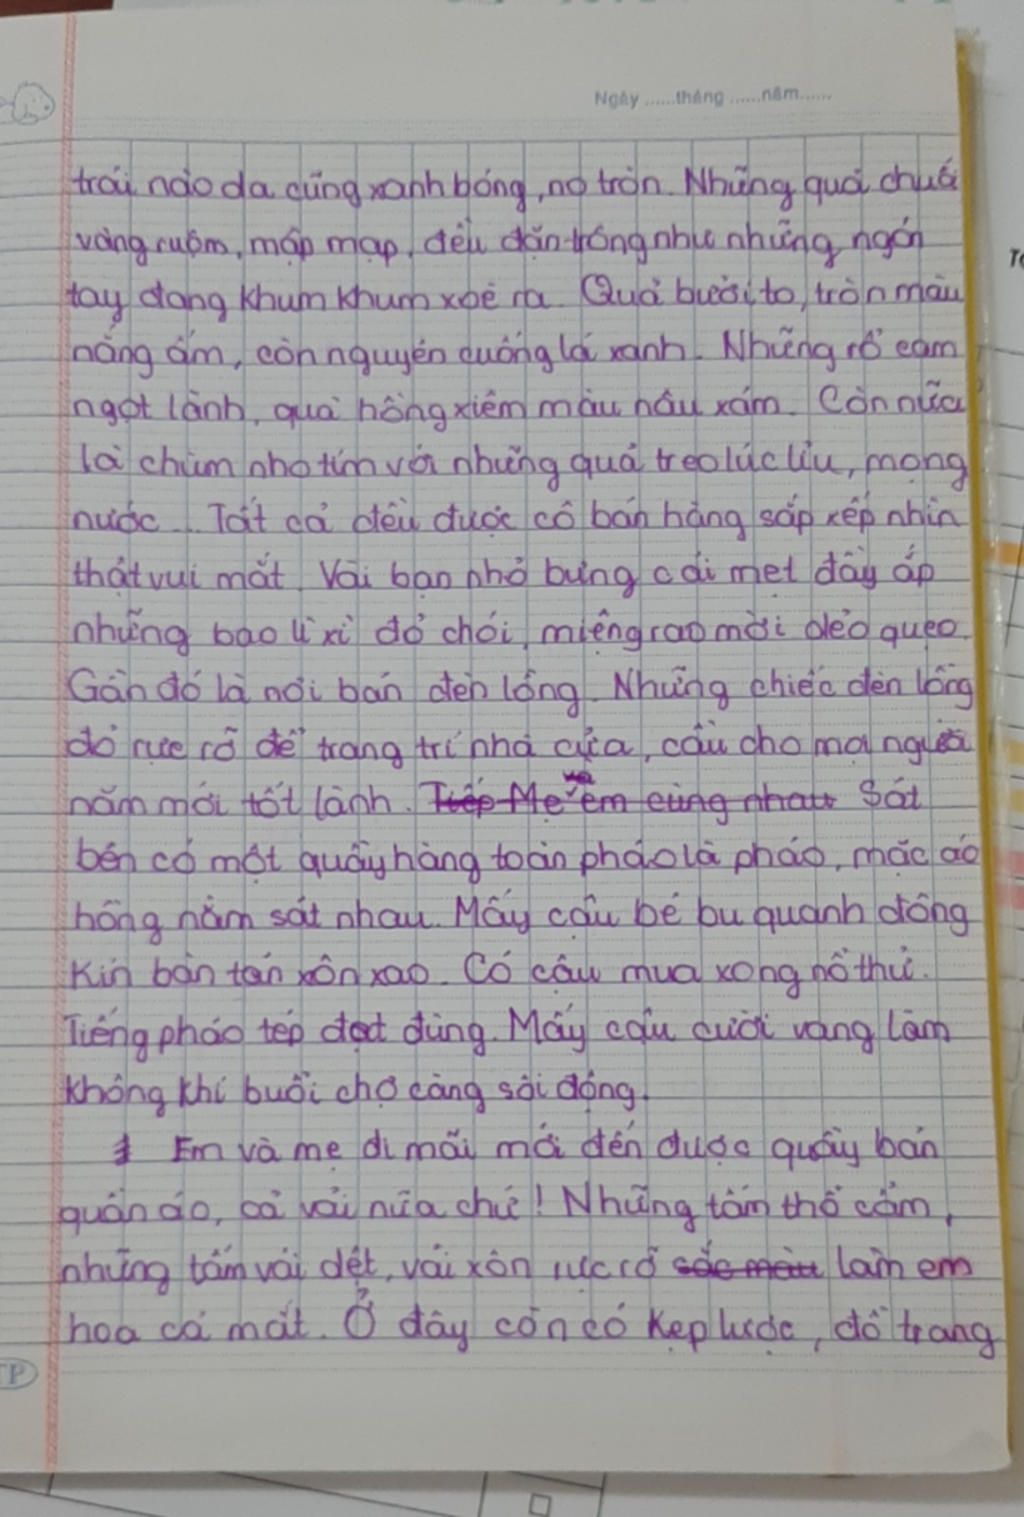 Ngày ......tháng ......năm......
trái nào da cũng xanh bóng, no tròn. Những quả chuối
vàng ruộm, mập mạp, đều đặn trông như những ngón
tay đang khum khum xoè ra. Quả bưởi to, tròn màu
nắng ấm, còn nguyên cuống lá xanh. Những rổ cam
ngọt lành, quả hồng xiêm màu nâu xám. Còn nữa
là chùm nho tím với những quả treo lúc lỉu, mọng
nước... Tất cả đều được cô bán hàng sắp xếp nhìn
thật vui mắt. Vài bạn nhỏ bưng cái mẹt đầy ắp
những bao lì xì đỏ chói, miệng rao mời dẻo quẹo.
Gần đó là nơi bán đèn lồng. Những chiếc đèn lồng
đỏ rực rỡ để trang trí nhà cửa, cầu cho mọi người
năm mới tốt lành. Tiếp Mẹ và em cùng nhau Sát
bên có một quầy hàng toàn pháo là pháo, mặc áo
hồng nằm sát nhau. Mấy cậu bé bu quanh đông
kín bàn tán xôn xao. Có cậu mua xong nổ thử.
Tiếng pháo tép đẹt đùng. Mấy cậu cười vang làm
không khí buổi chợ càng sôi động.
Em và mẹ đi mãi mới đến được quầy bán
quần áo, cả vải nữa chứ! Những tấm thổ cẩm,
những tấm vải dệt, vải xôn rực rỡ sắc màu làm em
hoa cả mắt. Ở đây còn có kẹp lược, đồ trang
TP